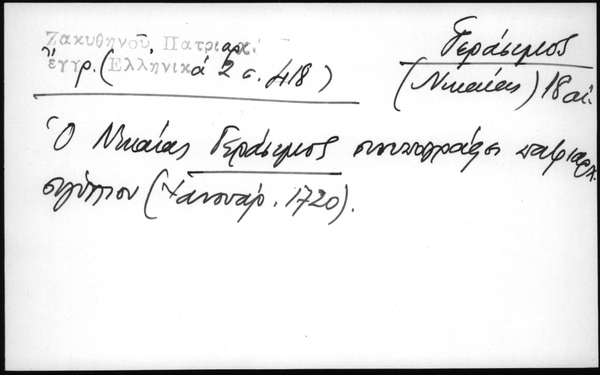 Ζακυθηνοῦ, Πατριαρχ.
ἔγγρ. (Ἑλληνικά 2 σ. 418)
Γεράσιμος
(Νικαίας) 18 αἰ.
Ὁ Νικαίας Γεράσιμος συνυπογράφει πατριαρχ.
σιγίλλιον (Ἰανουάρ. 1720).